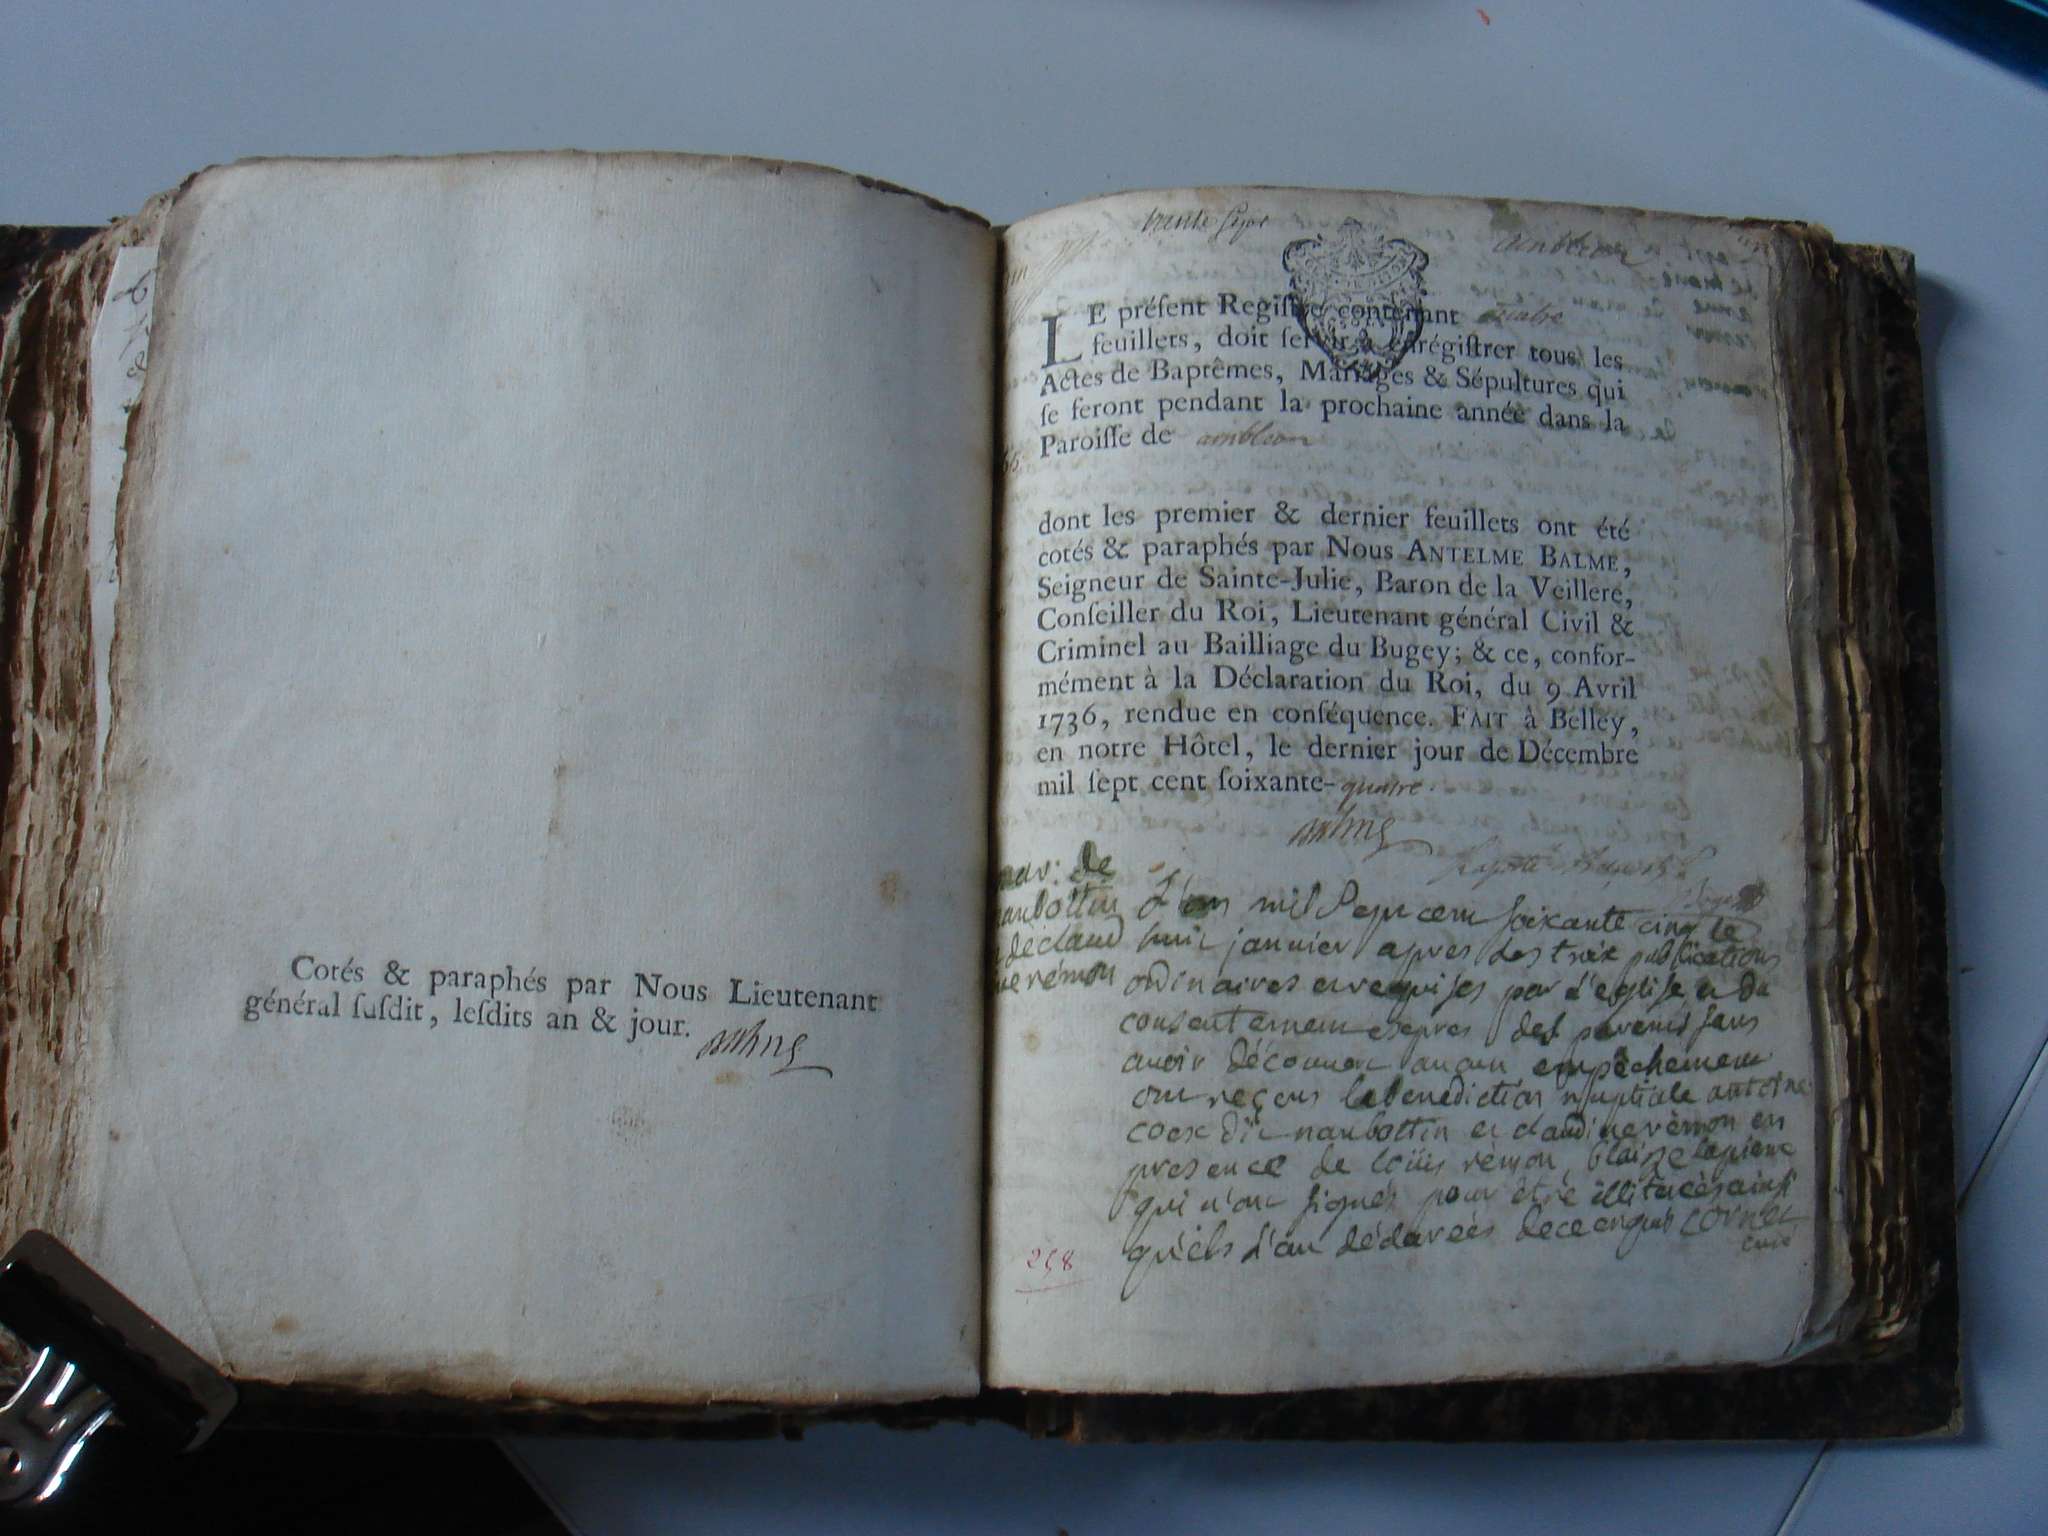 Cotés & paraphés par Nous Lieutenant
général ſuſdit, leſdits an & jour.
ambleon
LE préſent Regiſtre contenant quatre
feuillets, doit ſervir à enrégiſtrer tous les
Actes de Baptêmes, Mariages & Sépultures qui
ſe feront pendant la prochaine année dans la
Paroiſſe de ambleon
dont les premier & dernier feuillets ont été
cotés & paraphés par Nous ANTELME BALME,
Seigneur de Sainte-Julie, Baron de la Veillere,
Conſeiller du Roi, Lieutenant général Civil &
Criminel au Bailliage du Bugey; & ce, confor-
mément à la Déclaration du Roi, du 9 Avril
1736, rendue en conſéquence. FAIT à Belley,
en notre Hôtel, le dernier jour de Décembre
mil ſept cent ſoixante-quatre.
mar: de
naubottin
declaud
ine rémon
L'an mil Sept cent soixante cinq le
huit janvier apres les trois publications
ordinaires et requises par l'eglise et du
consentement expres des parents sans
avoir découvert aucun empêchement
ont reçeus la benediction nuptiale antoine
coex dit naubottin et claudine rémon en
presence de loüis rémon, blaize
qui n'ont signés pour être illiterés ainsi
qu'ils l'on déclarées de ce enquis Cornet
curé
258